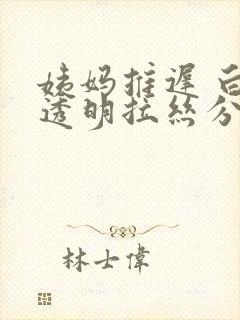 姨妈推迟 白
透明拉丝分
林士偉